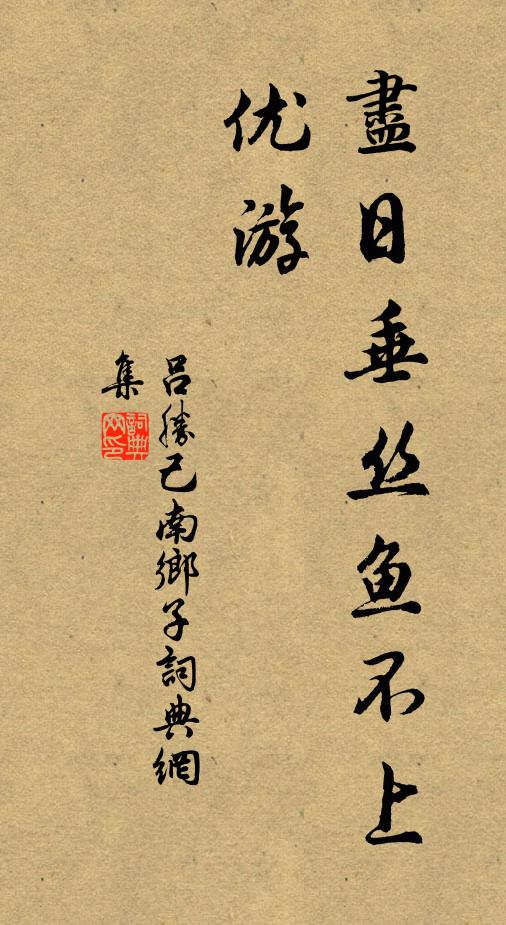 盡日垂丝魚不上
优游
吕勝己南鄉子詞典網
集
詞典
网印